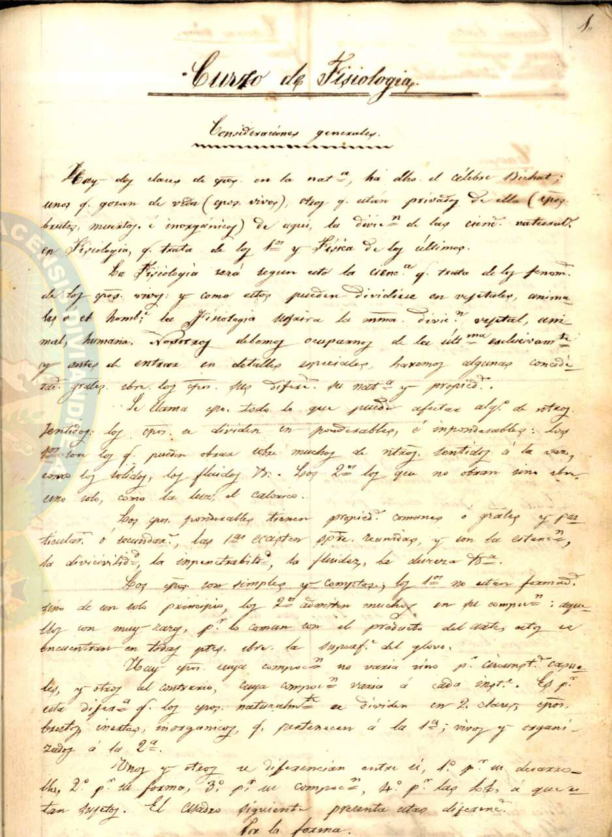 1.
Curso de Fisiologia.
Consideraciones generales.
Hay dos clases de cpos. en la natª, ha dho. el célebre Bichat;
unos q. gozan de vida (cpos. vivos), otros q. estan privados de ella (cpos.
brutos, muertos é inorganicos) de aqui, la divisn de las cienc. natural.
en Fisiologia, q. trata de los 1os y Fisica de los últimos.
La Fisiologia será segun esto la ciencª q. trata de los fenom.
de los cpos. vivos y como estos pueden dividirse en vejetales, anima
les o el homb. la Fisiologia la mma. divisn vejetal, ani-
mal, humana. Nosotros debemos ocuparnos de la últma esclusivamte
y antes de entrar en detalles especiales, haremos algunas conside-
rac. grales. sbre. los cpos. sus difere. su natª y propied.
Se llama cpo. todo lo que puede afectar alg.º de ntros.
sentidos: los cpos. se dividen en ponderables, é imponderables: los
1os son los q. pueden obrar sobre muchos de ntros. sentidos á la vez,
como los solidos, los fluidos &. Los 2os los que no obran sino sbre.
uno solo, como la luz, el calorico.
Los cpos. ponderables tienen propied. comunes o grales. y par
ticular. o secundar., las 1as sempre. reunidas, y son la estensn,
la divisivilidd, la impenetrabilidd, la fluidez, la dureza &ª.
Los cpos. son simples y comptos, los 1os no estan formad.
sino de un solo principio, los 2os admiten muchos en su composn: aque-
llos son muy raros, pª lo comun son el producto del arte, estos se
encuentran en todas ptes. sbre. la superf. del glovo.
Hay cpos. cuya composn no varia sino pr. circunst. espe-
les, y otros al contrario, cuya composn varia á cada inst.e. Es pr.
esta diferª q. los cpos. naturalmte se dividen en 2. clases cpos.
brutos, inertes, inorganicos, q. pertenecen á la 1ª; vivos y organi-
zados á la 2ª.
Unos y otros se diferencian entre si, 1º pr. su desarro-
llo, 2º pr. su forma, 3º pr. su composn, 4º pr. las á que es
tan sujetos. El cuadro siguiente presenta estas diferenc.
Por la forma.